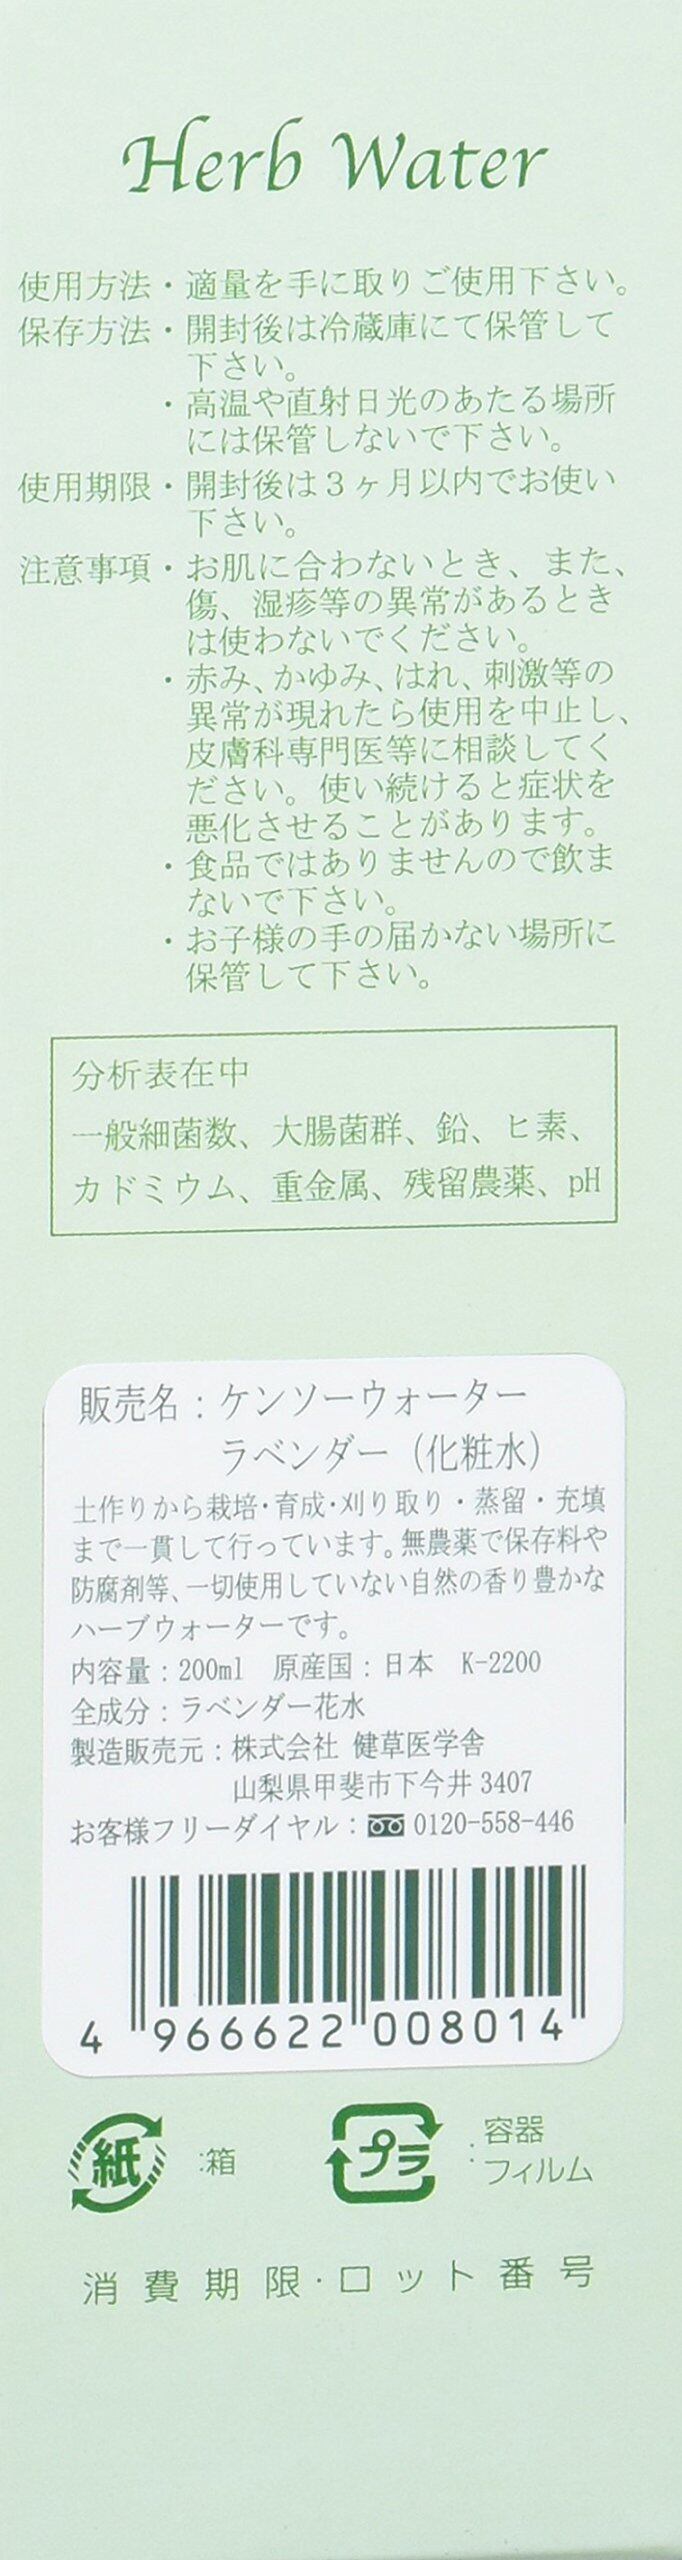 Herb Water
使用方法・適量を手に取りご使用下さい。
保存方法・開封後は冷蔵庫にて保管して
下さい。
・高温や直射日光のあたる場所
には保管しないで下さい。
使用期限・開封後は3ヶ月以内でお使い
下さい。
注意事項・お肌に合わないとき、また、
傷、湿疹等の異常があるとき
は使わないでください。
・赤み、かゆみ、はれ、刺激等の
異常が現れたら使用を中止し、
皮膚科専門医等に相談してく
ださい。使い続けると症状を
悪化させることがあります。
・食品ではありませんので飲ま
ないで下さい。
・お子様の手の届かない場所に
保管して下さい。
分析表在中
一般細菌数、大腸菌群、鉛、ヒ素、
カドミウム、重金属、残留農薬、pH
販売名：ケンソーウォーター
ラベンダー（化粧水）
土作りから栽培・育成・刈り取り・蒸留・充填
まで一貫して行っています。無農薬で保存料や
防腐剤等、一切使用していない自然の香り豊かな
ハーブウォーターです。
内容量：200ml 原産国：日本 K-2200
全成分：ラベンダー花水
製造販売元：株式会社 健草医学舎
山梨県甲斐市下今井 3407
お客様フリーダイヤル：0120-558-446
4 966622 008014
紙 :箱 プラ : 容器
フィルム
消費期限・ロット番号